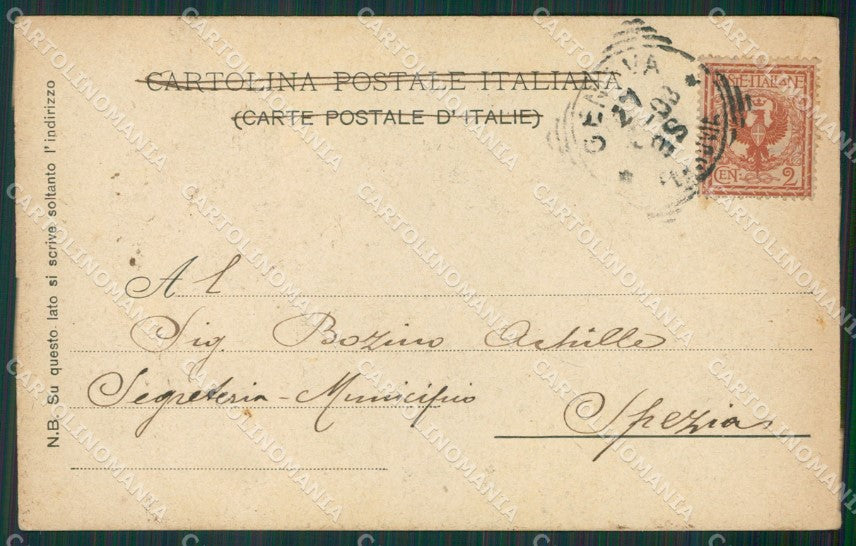 CARTOLINA POSTALE ITALIANA
(CARTE POSTALE D'ITALIE)
N.B. Su questo lato si scrive soltanto l'indirizzo
GENOVA
27
03
POSTE ITALIANE
CEN 2
Al
Sig Bozino Achille
Segreteria - Municipio
Spezia
CARTOLINOMANIA